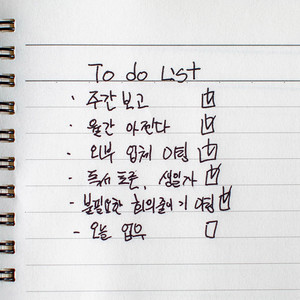 To do List
· 주간 보고
· 월간 아젠다
· 외부 업체 미팅
- 독서 토론, 생일자
- 불필요한 회의줄이기 미팅
- 오늘 업무